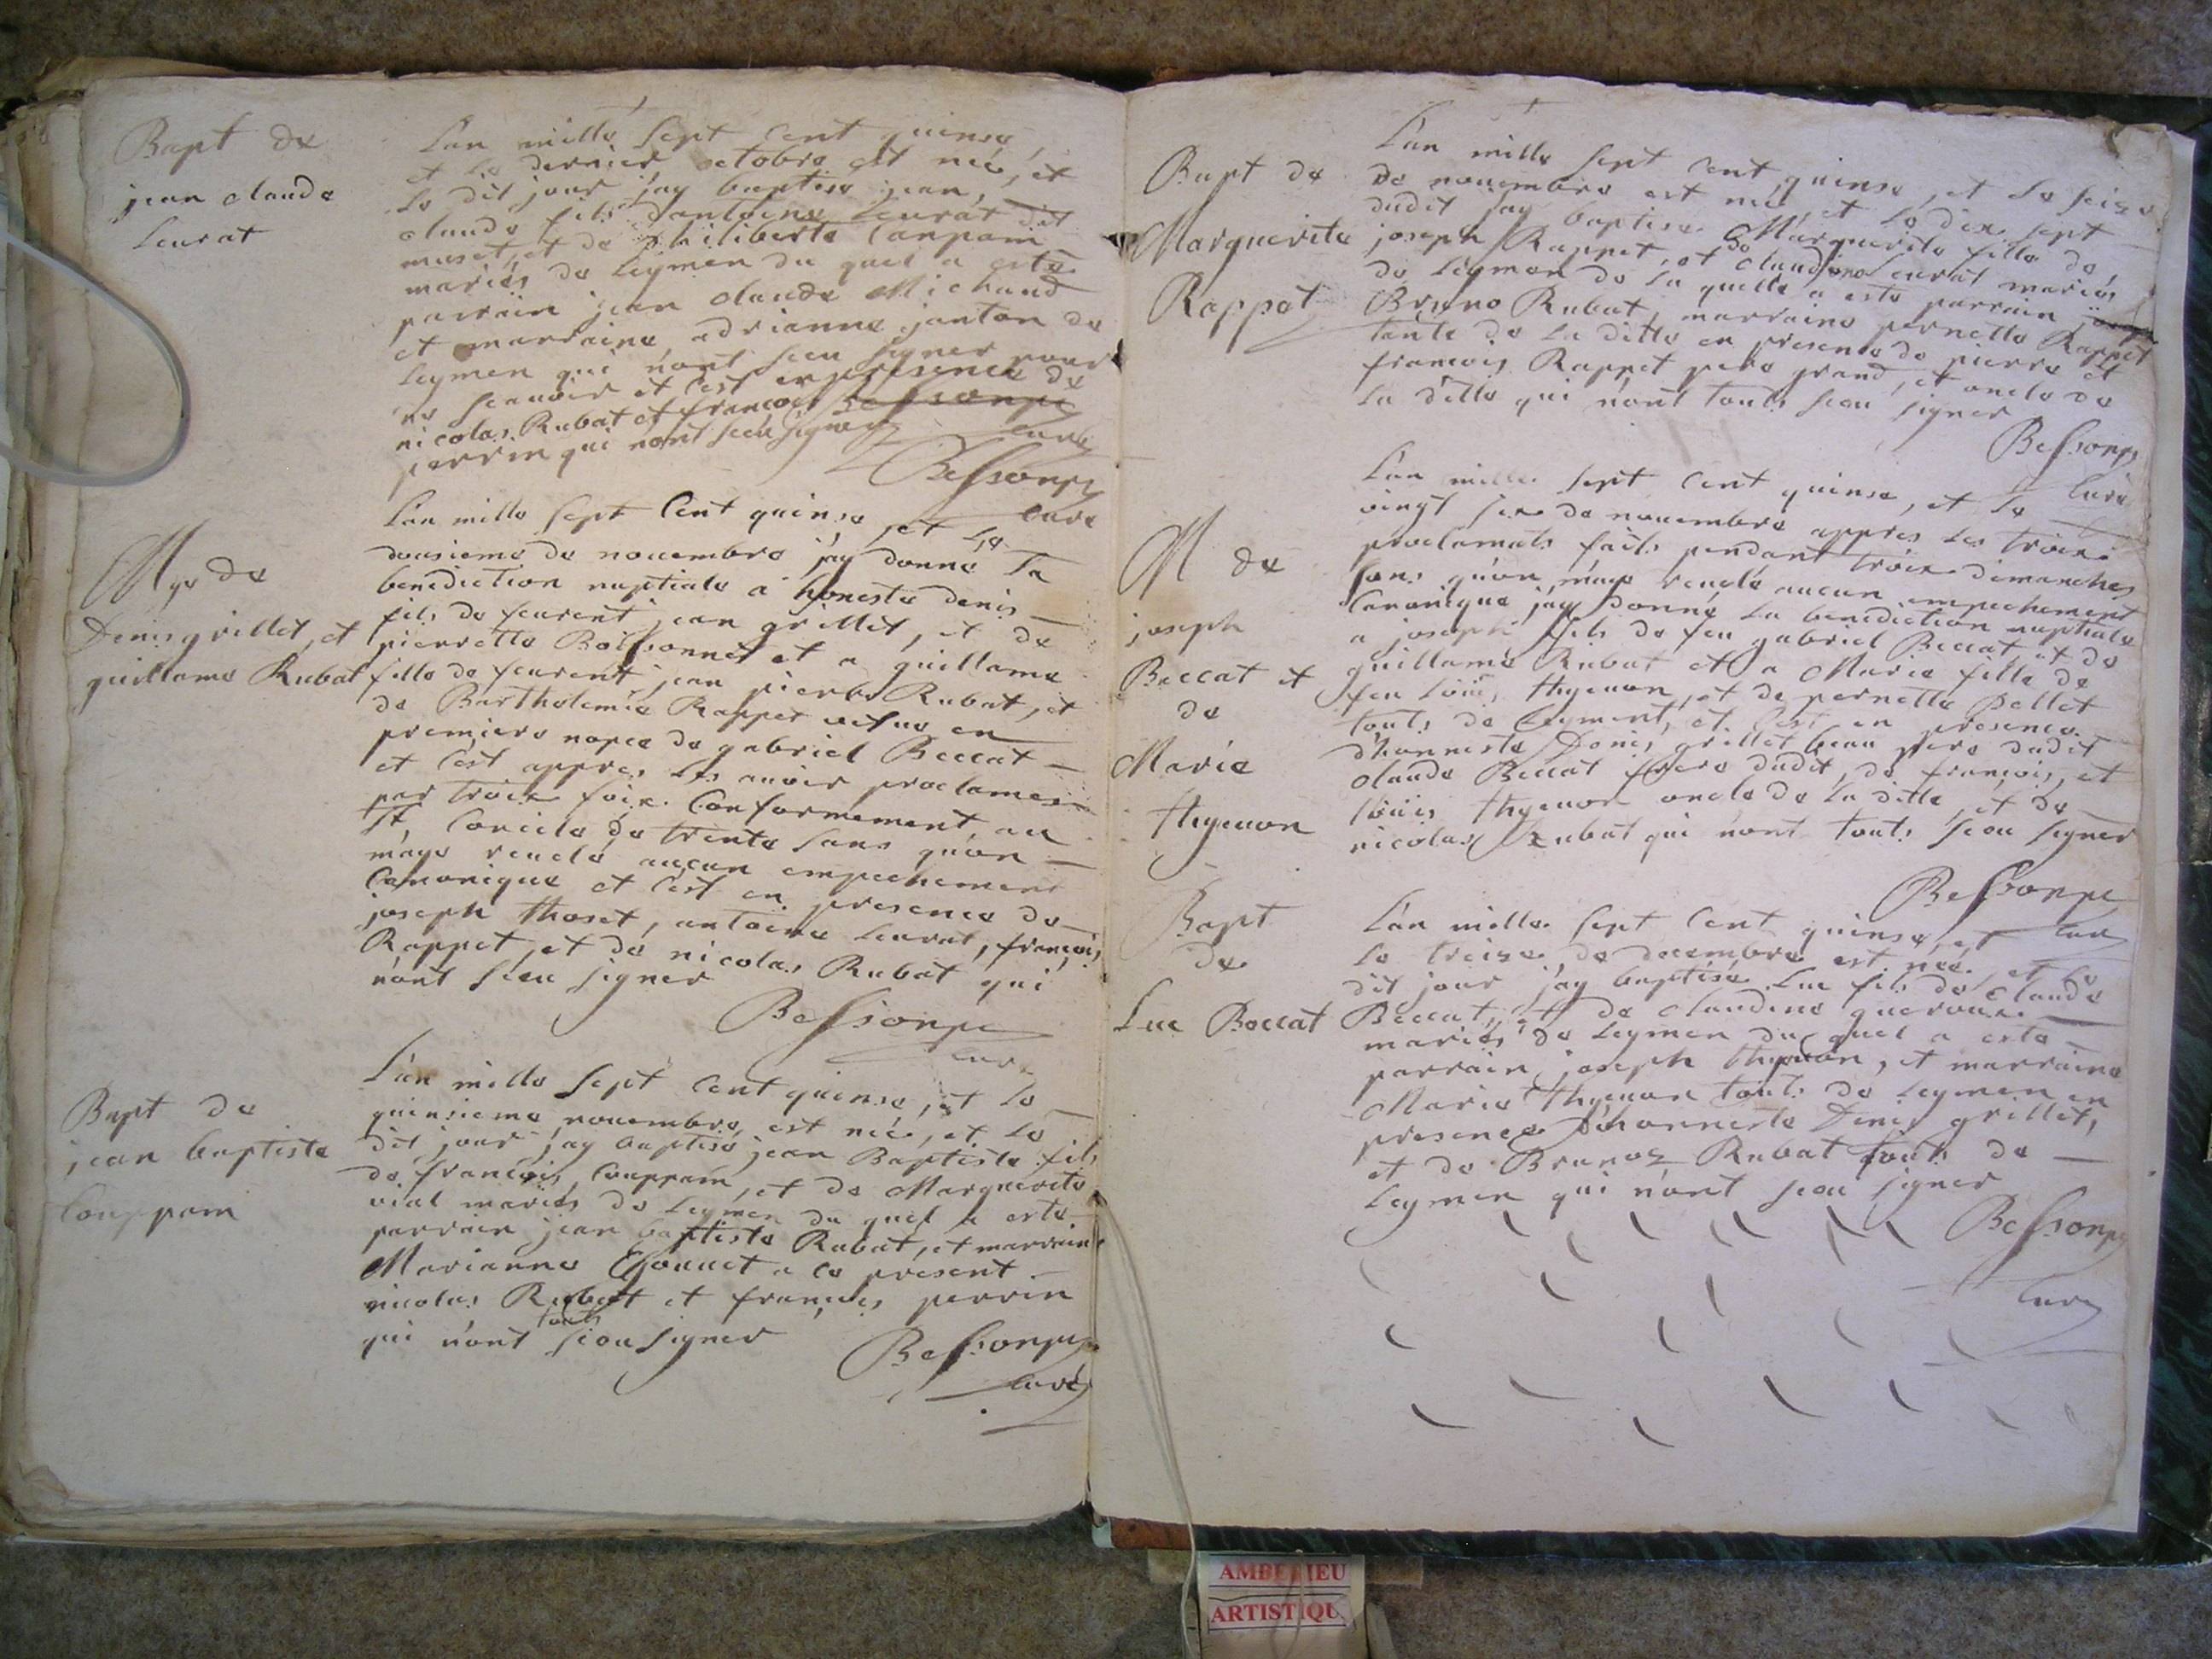 Bapt de
jean claude
Leurat
L'an mille sept cent quinse,
et le dernier octobre est neé, et
le dit jour jay baptisé jean,
claude fils dantoine Leurat dit
muset, et de philiberte Couppam
mariés de Leymen du quel a esté
parrain jean claude Michaud
et marraine adrianne janton de
Leymen qui n'ont sceu signer pour
ne scauoir et c'est en presence de
nicolas Rubat et françois
perrin qui n'ont sceu signer
Curé
Bessonpe
Curé
Mge de
Denis grillet, et
guillame Rubat
L'an mille sept Cent quinse, et Le
dousieme de nouembre j'ay donné La
benediction nuptiale a honeste denis
fils de feurent jean grillet, et de
pierrette Boissonnet et a guillame
fille de feurent jean pierre Rubat, et
de Bartholemie Rappet vefue en
premiere nopce de gabriel Beccat
et c'est appres les auoir proclames
par troix foix Conformement, au
St, Concile de trente sans qu'on
m'aye reuelé aucun empechement
Canonique et c'est en presence de
joseph thoset, antoine Leurat, françois
Rappet, et de nicolas Rubat qui
n'ont sceu signer
Bessonpe
Curé
Bapt de
jean baptiste
Couppam
L'an mille sept cent quinse, et le
quinsieme nouembre, est neé, et le
dit jour j'ay baptisé jean Baptiste fils
de françois Couppam, et de Marguerite
vial mariés de Leymen du quel a esté
parrain jean baptiste Rubat, et marraine
Marianne a ce present
nicolas Rubat et françois perrin
qui n'ont touts sceu signer
Bessonpe
Curé
Bapt de
Marguerite
Rappet
L'an mille sept cent quinse, et le seize
de nouembre est neé, et le dix sept
dudit jay baptisé Marguerite fille de
joseph Rappet, et de claudine Leurat mariés
de Leymen de la quelle a esté parrain
Bruno Rubat, marraine pernette Rappet
tante de la ditte en presence de pierre et
francois Rappet pere grand, et oncle de
la ditte qui n'ont touts sceu signer
Bessonpe
Curé
M de
joseph
Beccat et
de
Marie
thyeuon
L'an mille sept cent quinse, et le
vingt six de nouembre appres les troix
proclamats faits pendant troix dimanches
sans qu'on m'aye reuelé aucun empechement
Canonique, j'ay donné la benediction nuptiale
a joseph fils de feu gabriel Beccat et de
guillame Rubat et a Marie fille de
feu Loüis thyeuon, et de pernette Pellet
touts de Leyment, et c'est en presence
d'honneste Denis grillet beau pere dudit
claude Beccat frere dudit, de françois, et
Loüis thyeuon oncle de la ditte, et de
nicolas Rubat qui n'ont touts sceu signer
Bessonpe
Curé
Bapt
de
Luc Beccat
L'an mille sept cent quinse, et
le treize de decembre est neé, et le
dit jour j'ay baptisé Luc fils de claude
Beccat, et de claudine
mariés de Leymen du quel a esté
parrain joseph thyeuon, et marraine
Marie thyeuon touts de Leymen en
presence d'honneste Denis grillet,
et de Brunoz Rubat touts de
Leymen qui n'ont sceu signer
Bessonpe
Curé
AMBERIEU
ARTISTIQU